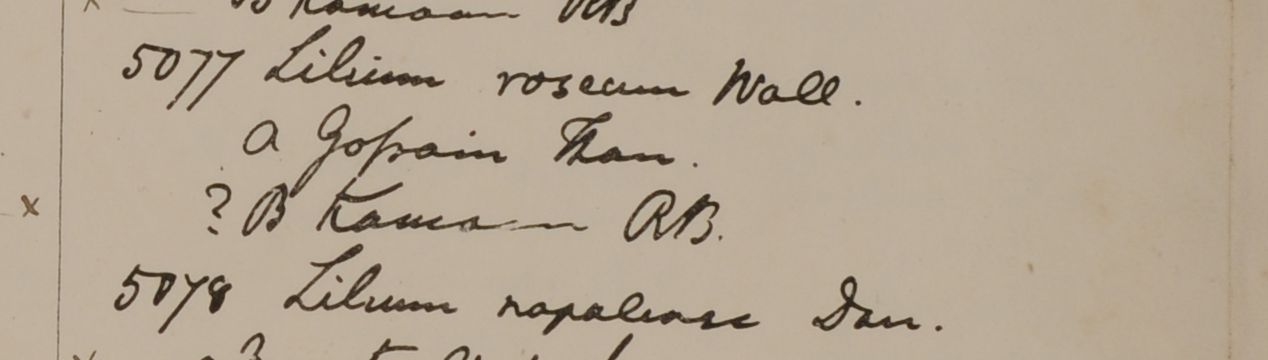 B Kamaon RB
5077 Lilium roseum Wall.
a Gossain Than.
? B Kamaon RB.
5078 Lilium napalense Don.